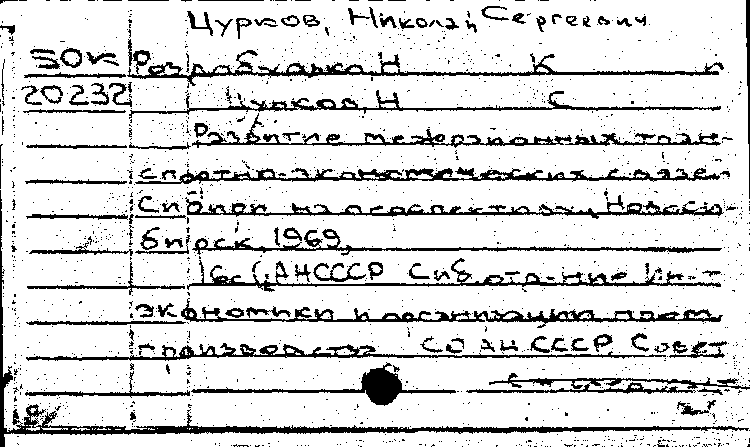 Цурков, Николай Сергеевич
30К Н К и
20232 Цурков, Н С.
Развитие межрайонных тран-
спортно-экономических связей
Сибири на перспективу, Новоси-
бирск, 1969,
16с (АН СССР Сиб. отд-ние Ин-т
экономики и организации пром.
производства СО АН СССР Совет